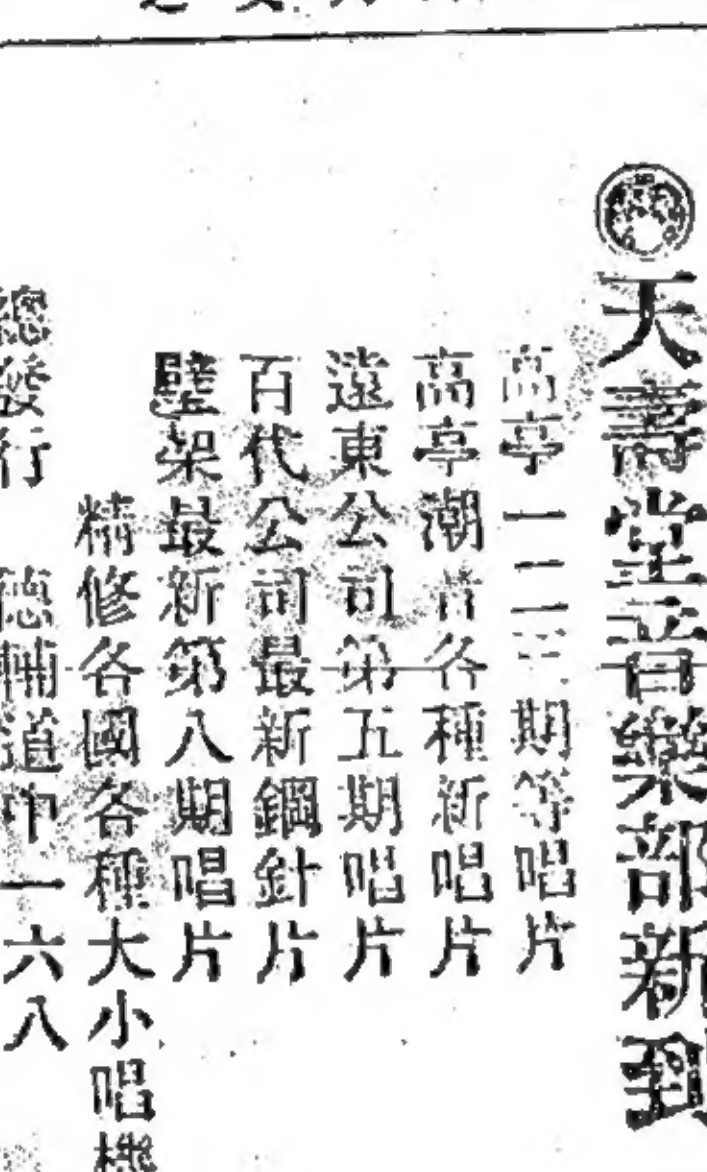 天壽堂音樂部新到
高亭一二三期等唱片
高亭潮音各種新唱片
遠東公司第五期唱片
百代公司最新鋼針片
璧架最新第八期唱片
精修各國各種大小唱機
總發行 德輔道中一六八